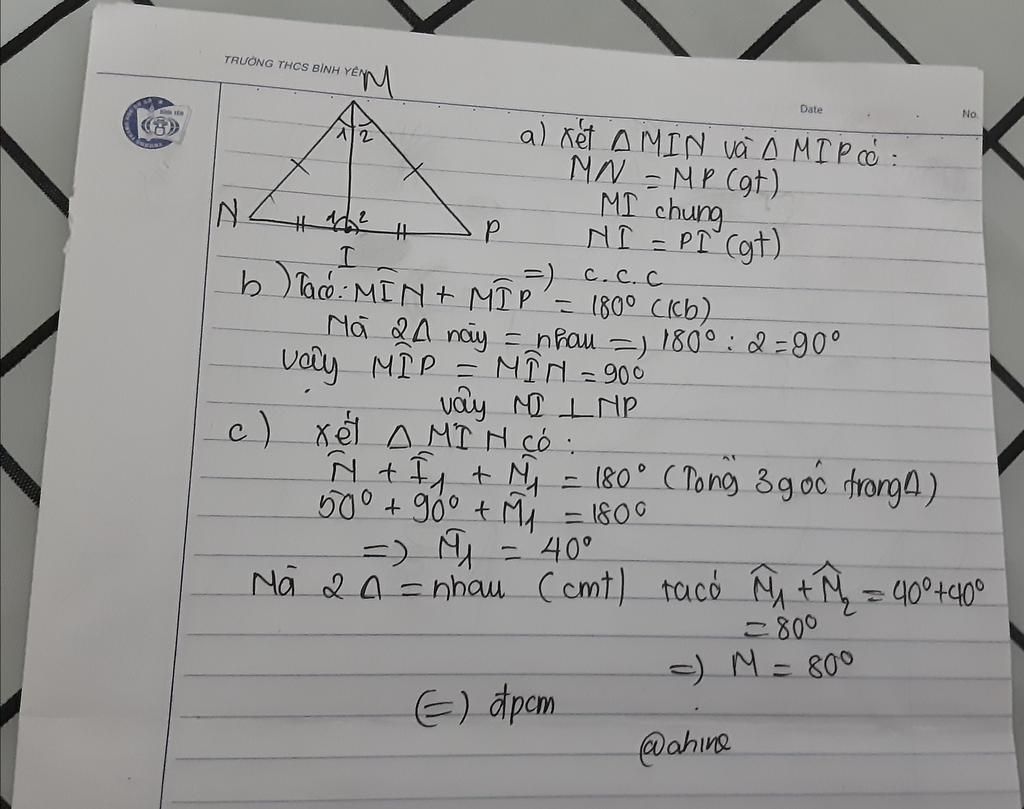 TRƯỜNG THCS BÌNH YÊN
Date
No.
M
1 2
N
1 2
P
I
a) Xét Δ MIN và Δ MIP có:
MN = MP (gt)
MI chung
NI = PI (gt)
=> c.c.c
b) Ta có: MÎN + MÎP = 180° (kb)
Mà 2Δ này = nhau => 180° : 2 = 90°
vậy MÎP = MÎN = 90°
vậy MI ⊥ NP
c) Xét Δ MIN có:
N̂ + Î₁ + M̂₁ = 180° (Tổng 3 góc trong Δ)
50° + 90° + M̂₁ = 180°
=> M̂₁ = 40°
Mà 2 Δ = nhau (cmt) ta có M̂₁ + M̂₂ = 40° + 40°
= 80°
=> M = 80°
(=) đpcm
@ahine